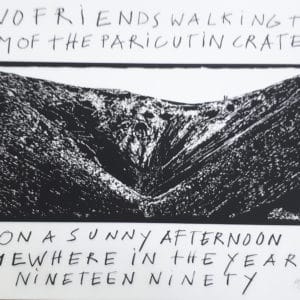 WO FRIENDS WALKING T
M OF THE PARICUTIN CRATE
ON A SUNNY AFTERNOON
MEWHERE IN THE YEAR
NINETEEN NINETY